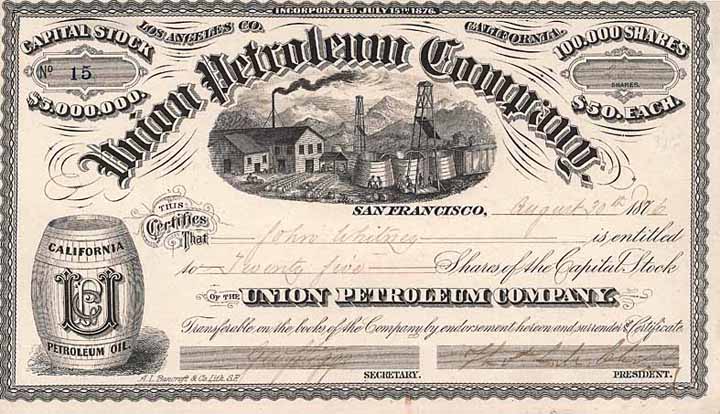 INCORPORATED JULY 15TH 1876.
LOS ANGELES CO. CALIFORNIA.
CAPITAL STOCK
No 15
$5,000,000.
100,000 SHARES
SHARES.
$50. EACH.
Union Petroleum Company.
SAN FRANCISCO, August 30th 1876
THIS Certifies That John Whitney is entitled
to Twenty five Shares of the Capital Stock
OF THE UNION PETROLEUM COMPANY.
Transferable on the books of the Company by endorsement hereon and surrender of Certificate
SECRETARY. PRESIDENT.
CALIFORNIA
UCP
PETROLEUM OIL.
A.L. Bancroft & Co. Lith. S.F.